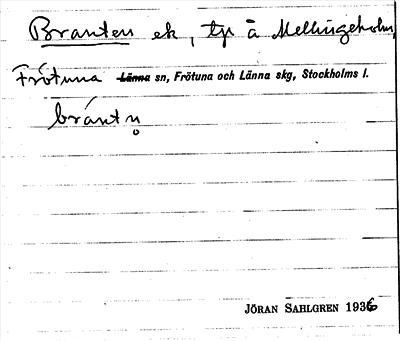 Branten ek, tp å Mellingeholm,
Frötuna Länna sn, Frötuna och Länna skg, Stockholms l.
bránt n̥
JÖRAN SAHLGREN 1936